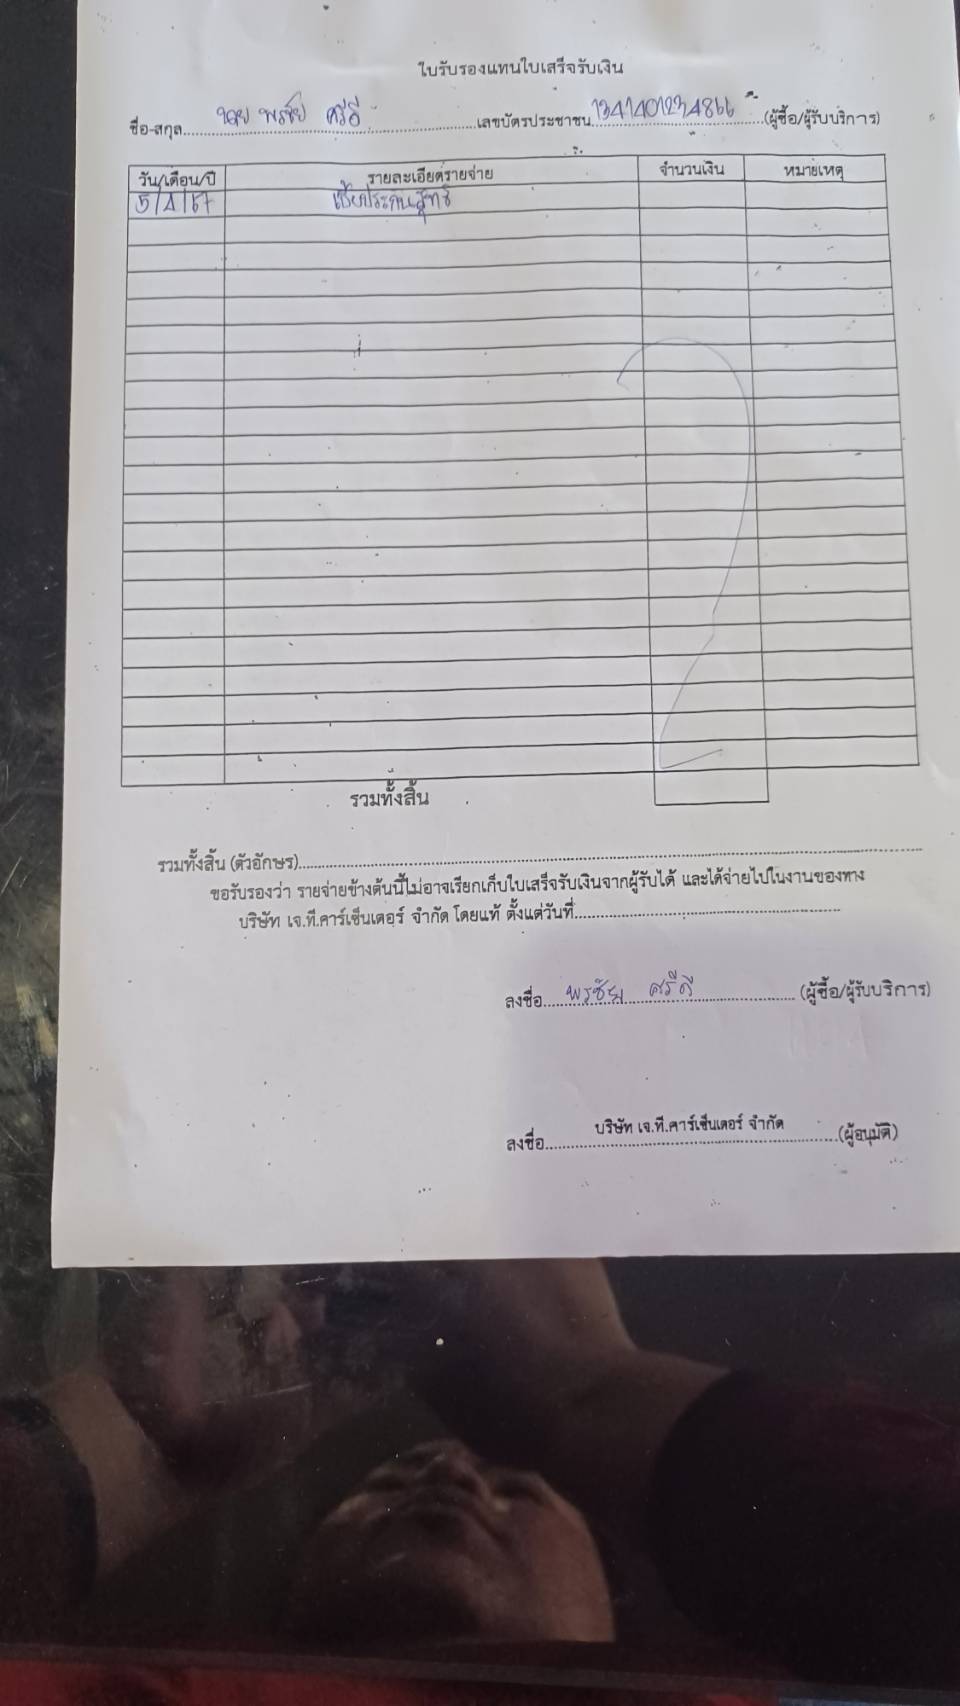 ใบรับรองแทนใบเสร็จรับเงิน
ชื่อ-สกุล นาย พรชัย ศรีดี เลขบัตรประชาชน 1341401234866 (ผู้ซื้อ/ผู้รับบริการ)
วัน/เดือน/ปี รายละเอียดรายจ่าย จำนวนเงิน หมายเหตุ
5/4/67 เบี้ยประกันสุทธิ
รวมทั้งสิ้น
รวมทั้งสิ้น (ตัวอักษร)
ขอรับรองว่า รายจ่ายข้างต้นนี้ไม่อาจเรียกเก็บใบเสร็จรับเงินจากผู้รับได้ และได้จ่ายไปในงานของทาง
บริษัท เจ.ที.คาร์เซ็นเตอร์ จำกัด โดยแท้ ตั้งแต่วันที่
ลงชื่อ พรชัย ศรีดี (ผู้ซื้อ/ผู้รับบริการ)
ลงชื่อ บริษัท เจ.ที.คาร์เซ็นเตอร์ จำกัด (ผู้อนุมัติ)